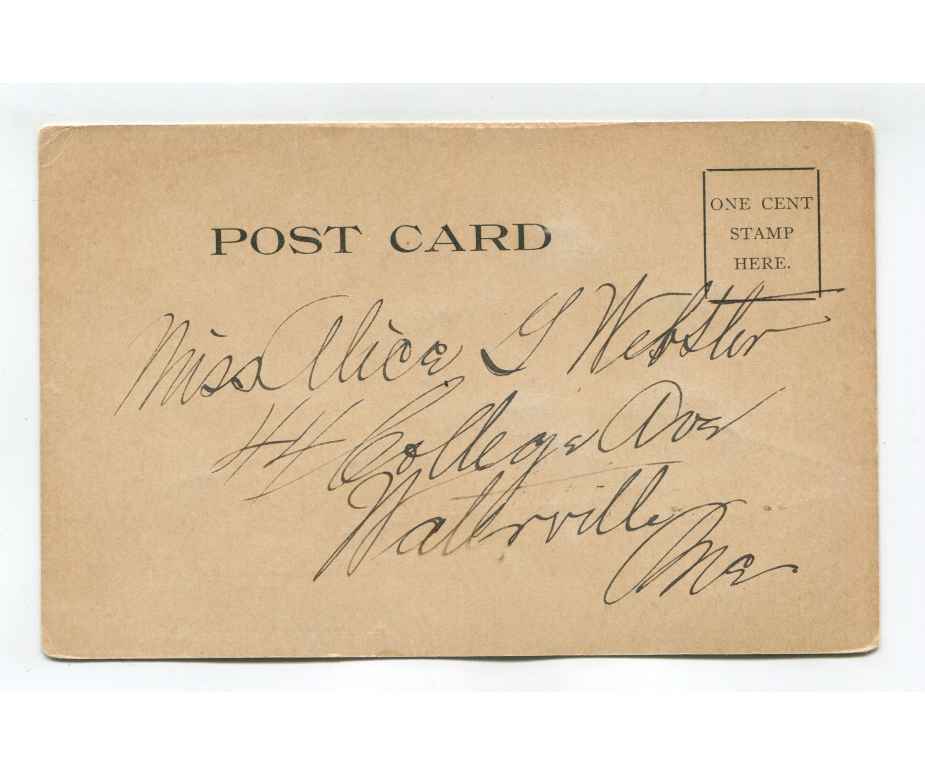 POST CARD
ONE CENT
STAMP
HERE.
Miss Alice G Webster
44 College Ave
Waterville
Me